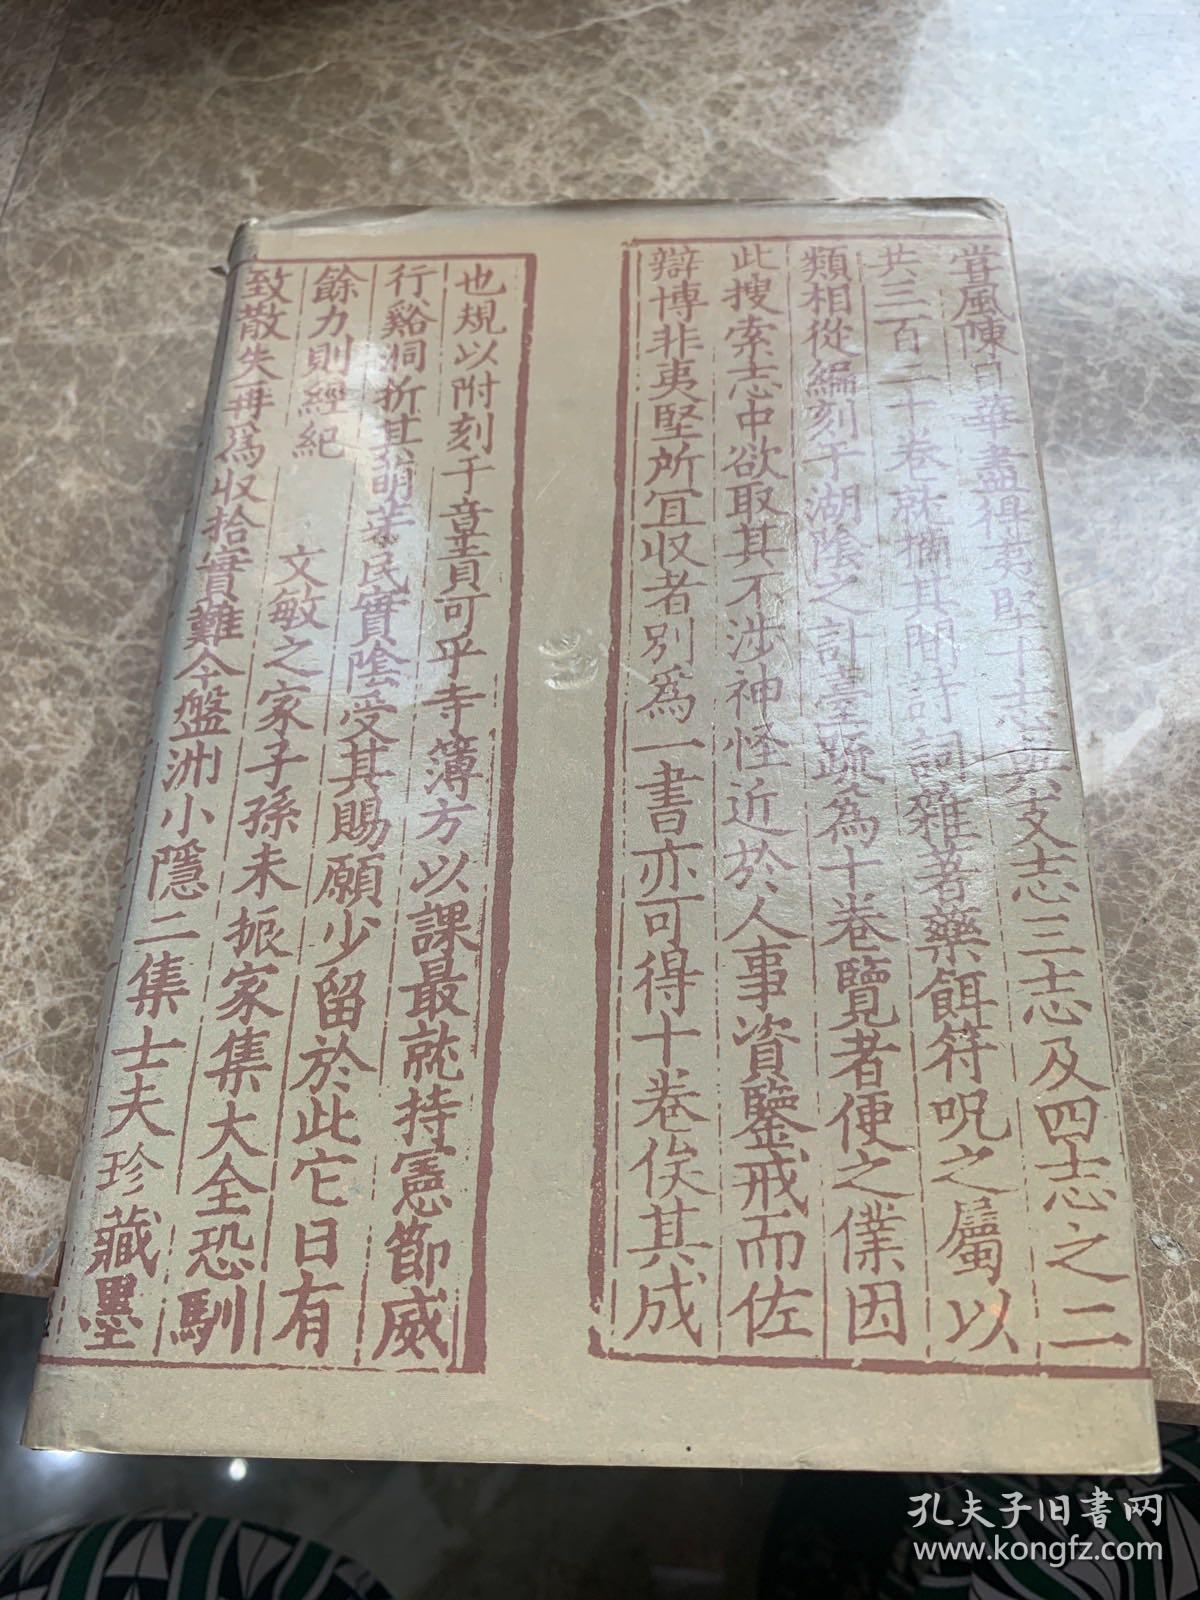 嘗風陳日華盡得夷堅十志與支志三志及四志之二
共三百二十卷就摘其間詩詞雜著藥餌符呪之屬以
類相從編刻于湖陰之計臺疏為十卷覽者便之僕因
此搜索志中欲取其不涉神怪近於人事資鑒戒而佐
辯博非夷堅所宜収者別為一書亦可得十卷俟其成
也規以附刻于章貢可乎寺簿方以課最就持憲節威
行谿洞折其萌芽民實陰受其賜願少留於此它日有
餘力則經紀 文敏之家子孫未振家集大全恐馴
致散失再為収拾實難今盤洲小隱二集士夫珍藏墨
孔夫子旧书网
www.kongfz.com